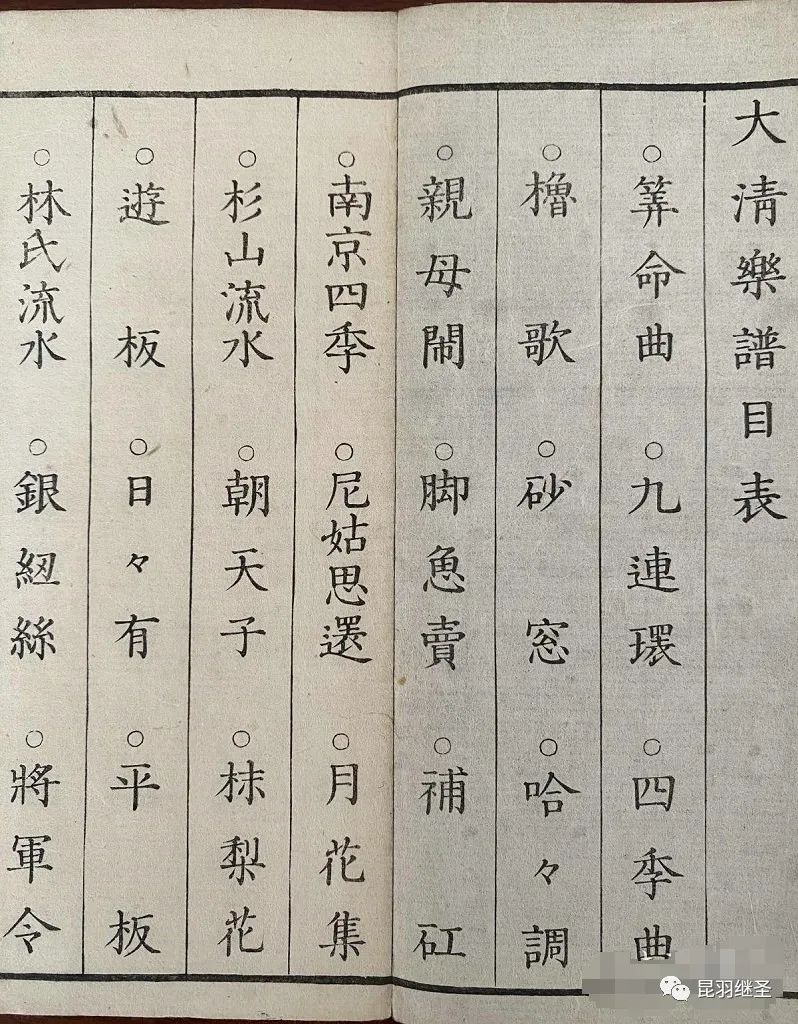 大淸樂譜目表
○筭命曲○九連環○四季曲
○櫓歌○砂窓○哈々調
○親母鬧○脚魚賣○補矼
○南京四季○尼姑思還○月花集
○杉山流水○朝天子○枺梨花
○遊板○日々有○平板
○林氏流水○銀紐絲○將軍令
昆羽继圣